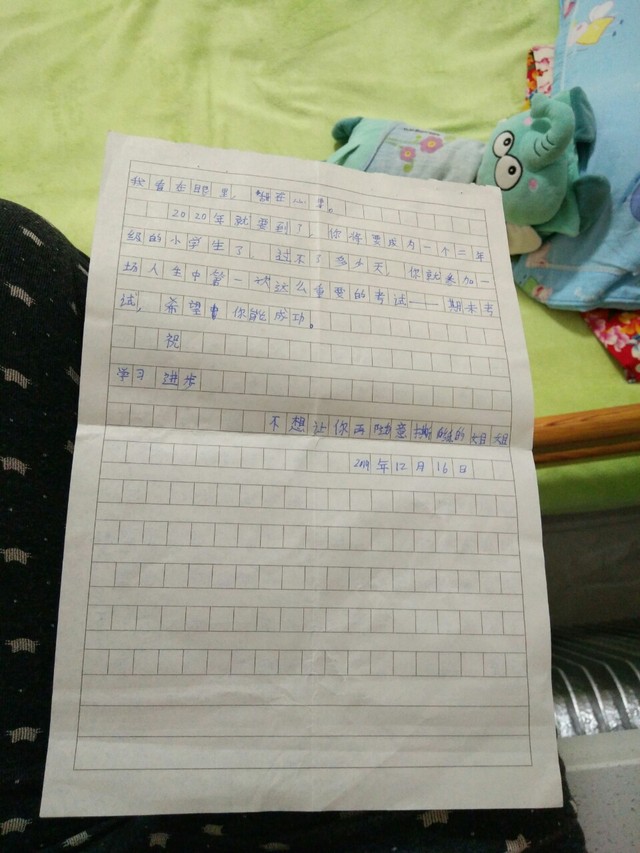 我看在眼里，想在心里。
2020年就要到了，你将要成为一个二年
级的小学生了，过不了多少天，你就要参加一
场人生中第一次这么重要的考试——期末考
试，希望你能成功。
祝
学习进步
不想让你再随意撕的姐姐
2019年12月16日